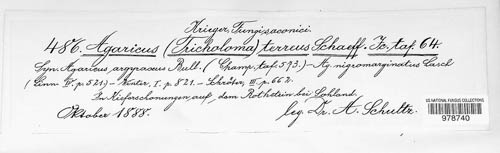 Krieger, Fungi saxonici.
486. Agaricus (Tricholoma) terreus Schaeff. Ic. taf. 64.
Syn. Agaricus argyraceus Bull. (Champ. taf. 593.) – Ag. nigromarginatus Lasch
(Linn. IV. p. 521.) – Winter, I. p. 821. – Schröter, III. p. 662.
In Kieferschonungen auf dem Rothstein bei Sohland.
Oktober 1888. leg. Dr. A. Schultz.
US NATIONAL FUNGUS COLLECTIONS
978740